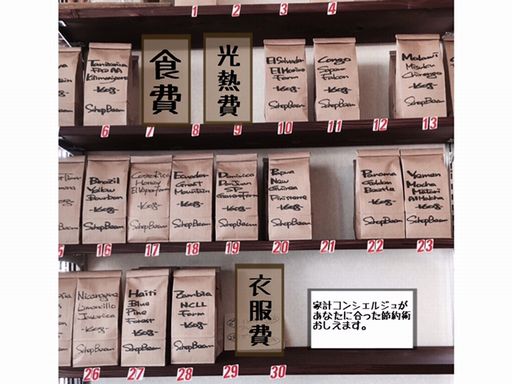 2
3
4
食費
光熱費
Tanzania
Kilimanjaro
1Kg
SchopBean
El Salvador
El Morico
Farm
1Kg
SchopBean
Congo
Falcon
1Kg
SchopBean
Malawi
Misuku
1Kg
SchopBean
6
7
8
9
10
11
12
13
Brazil
Yellow
Bourbon
1Kg
SchopBean
Costa Rica
Honey
1Kg
SchopBean
Ecuador
Great
Mountain
1Kg
SchopBean
Dominica
SchopBean
Papua
New
Guinea
1Kg
SchopBean
Panama
Golden
1Kg
SchopBean
Yemen
Mocha
Matari
1Kg
SchopBean
5
16
17
18
19
20
21
22
23
Nicaragua
Limoncillo
1Kg
SchopBean
Haiti
Blue
Pine
Forest
1Kg
SchopBean
Zambia
NCLL
Farm
1Kg
SchopBean
衣服費
家計コンシェルジュが
あなたに合った節約術
おしえます。
26
27
28
29
30